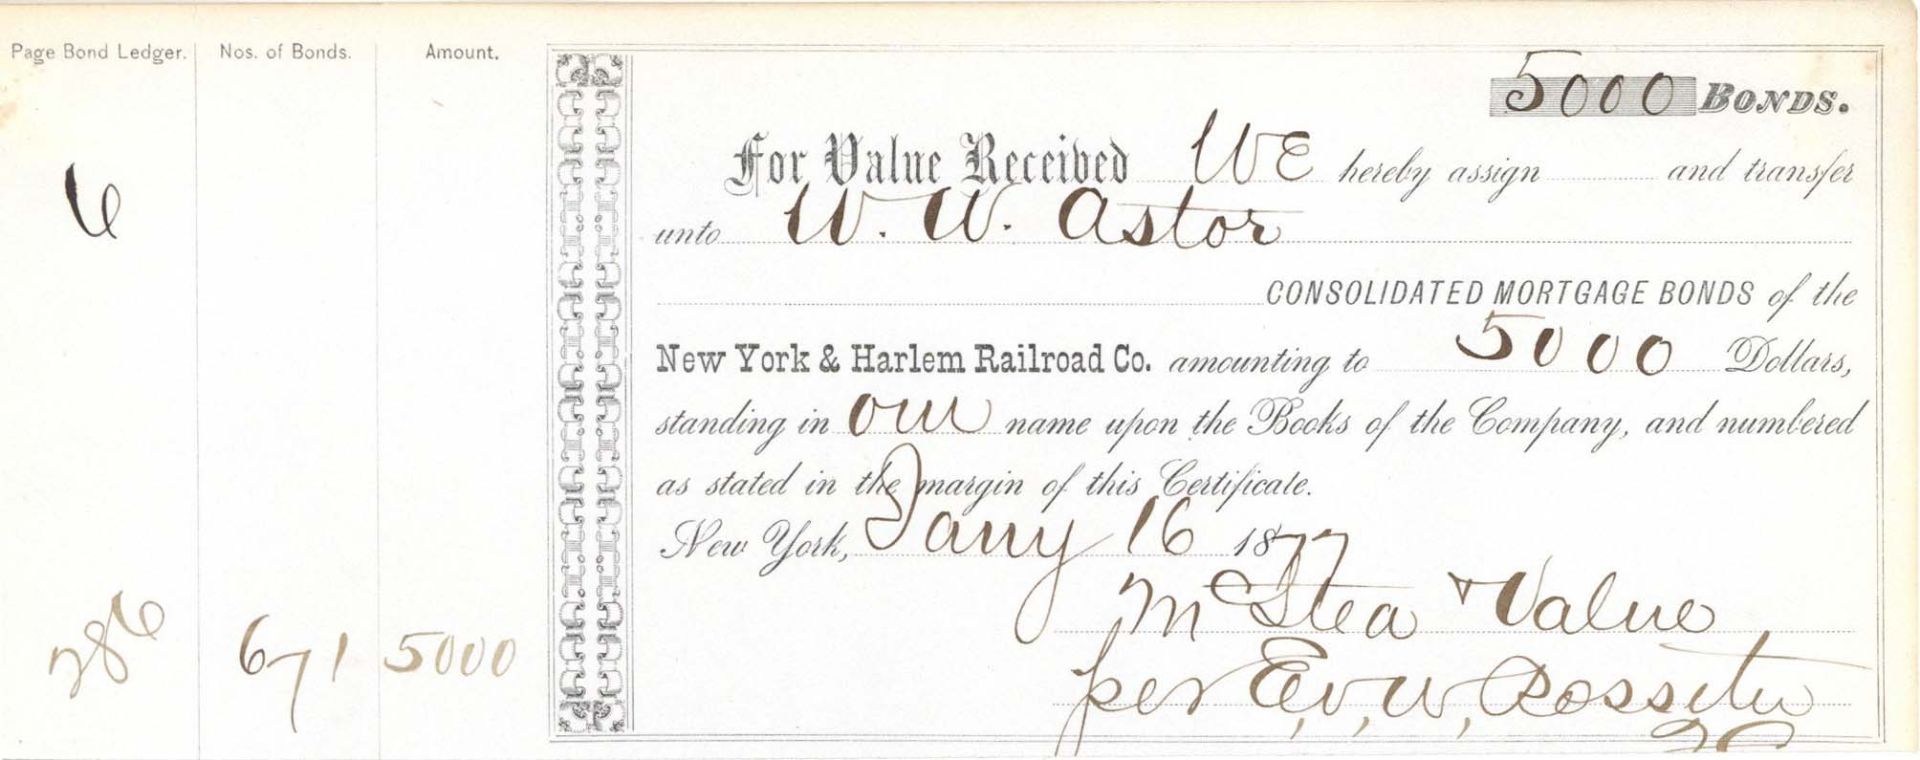 Page Bond Ledger. Nos. of Bonds. Amount.
5000 BONDS.
For Value Received WE hereby assign and transfer
unto W. W. Astor
CONSOLIDATED MORTGAGE BONDS of the
New York & Harlem Railroad Co. amounting to 5000 Dollars,
standing in our name upon the Books of the Company, and numbered
as stated in the margin of this Certificate.
New York, Jany 16 1877
6
286 671 5000
& Value
per E. W. Rossiter